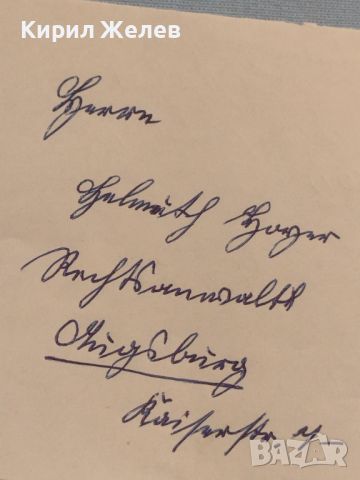 Кирил Желев
Herrn
Helmuth Hoyer
Rechtsanwalt
Augsburg
Kaiserstr
bazar
БГ